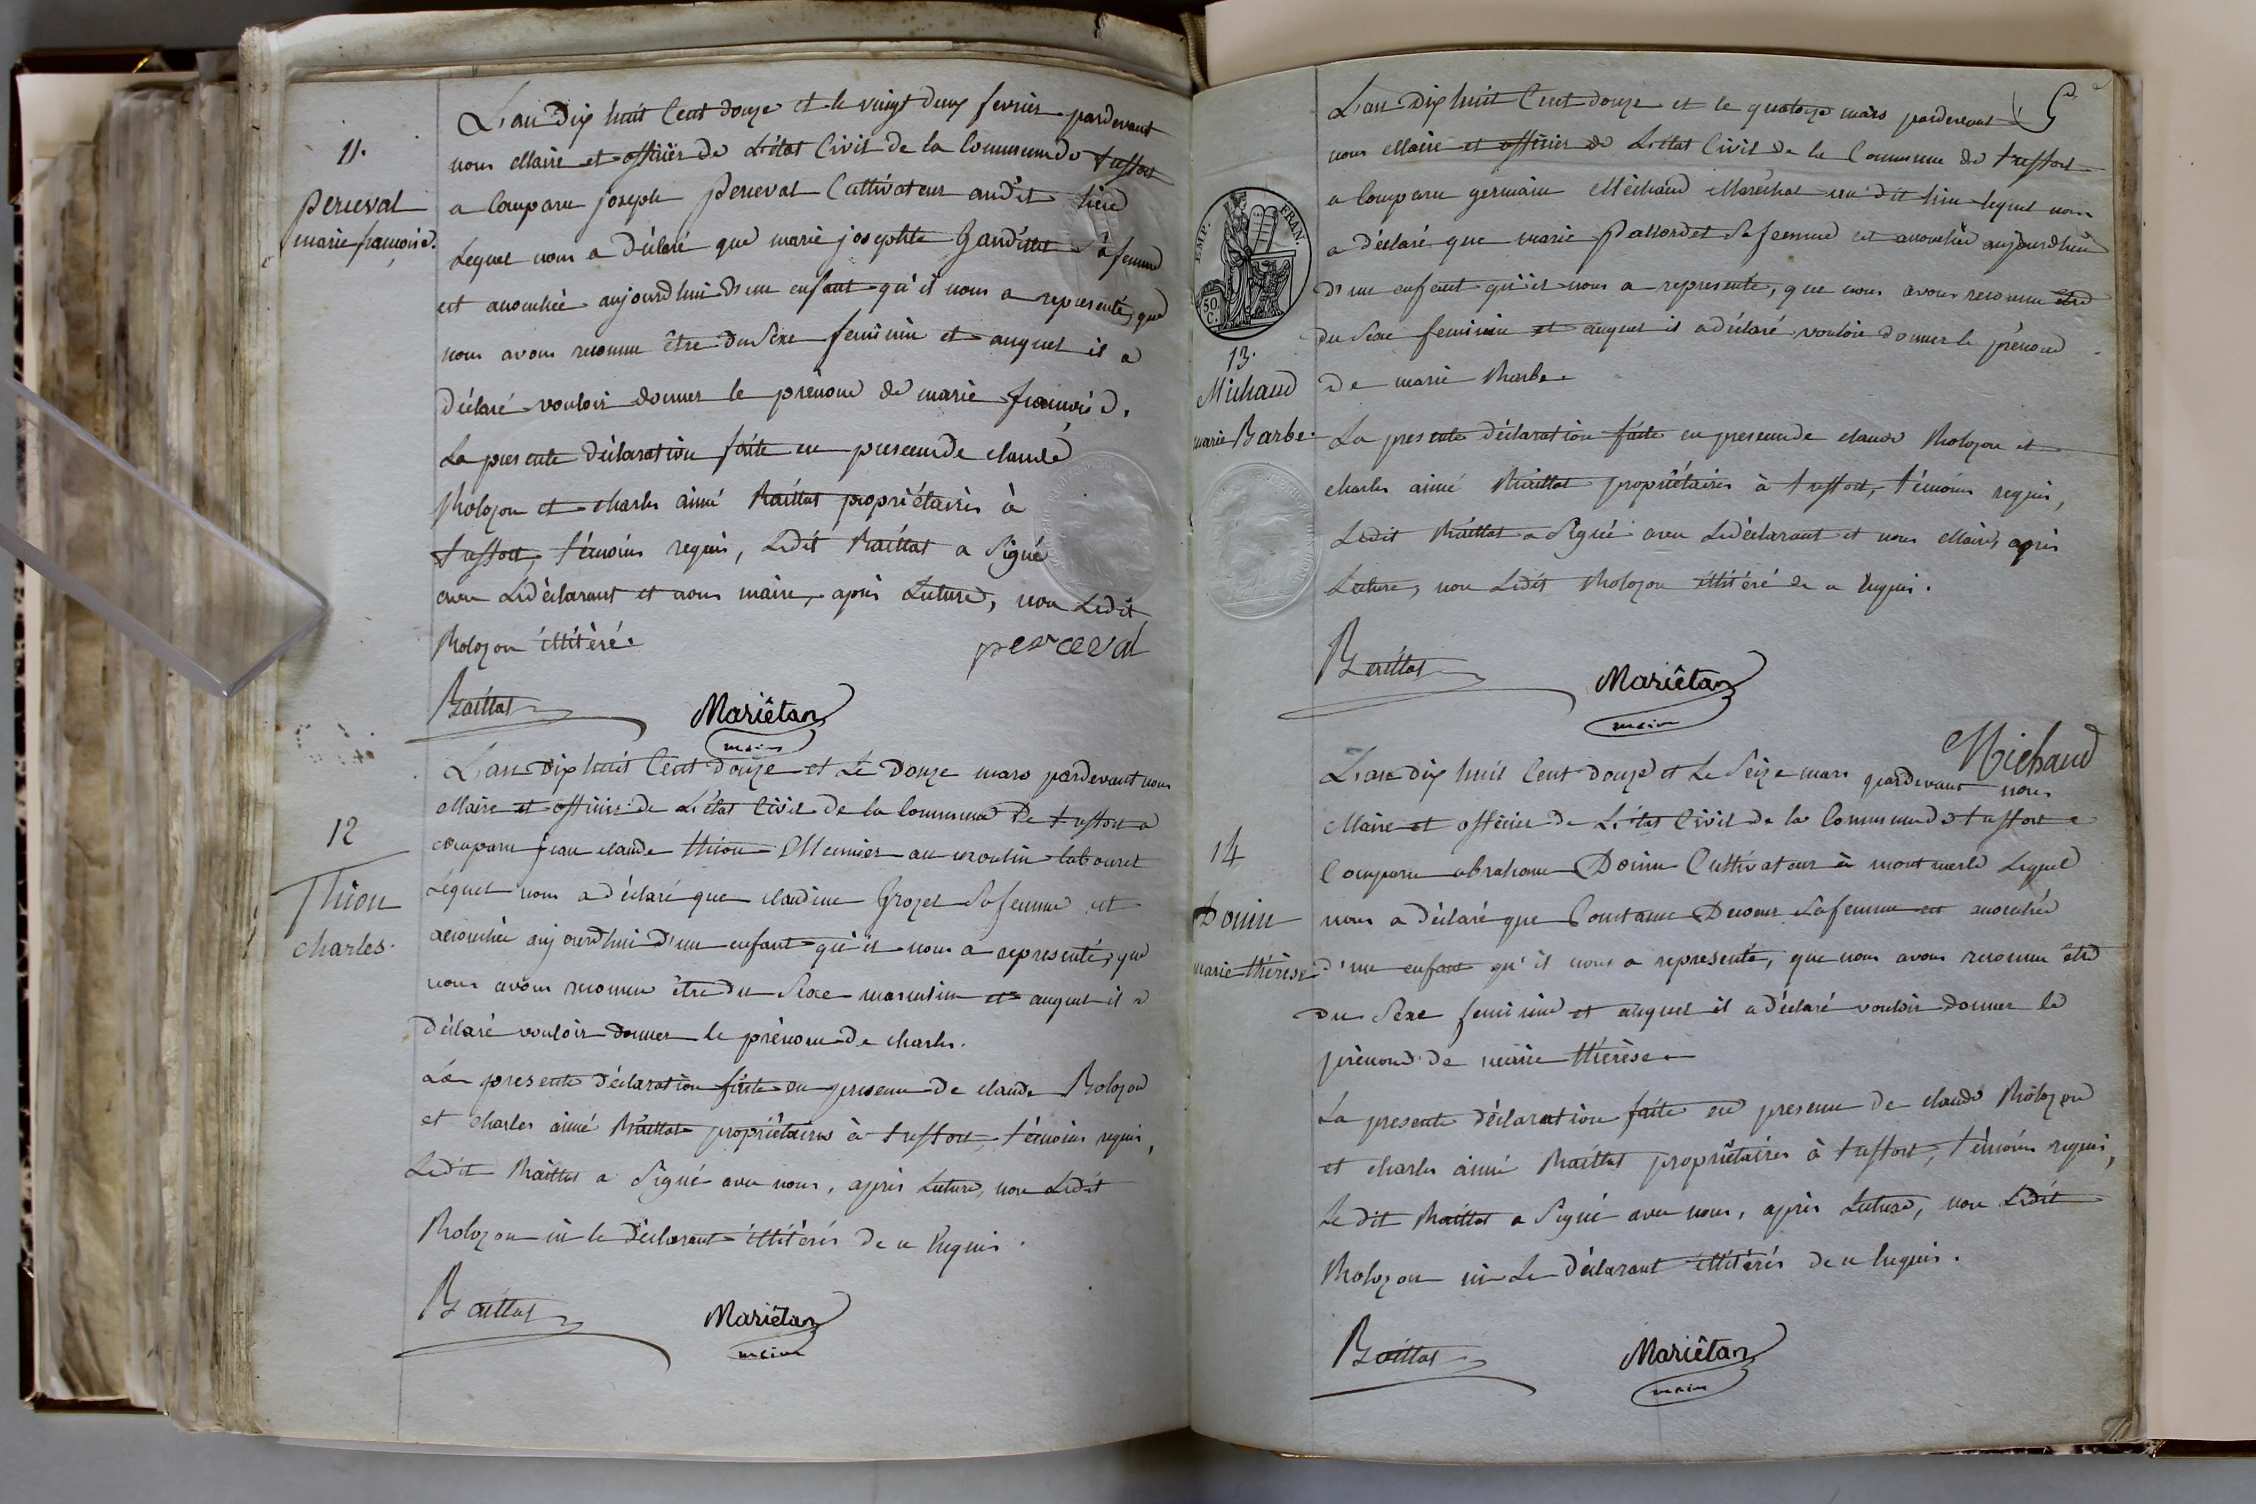 11.
Perceval
marie françoise.
L'an Dix huit Cent douze et le vingt deux fevrier pardevant
nous Maire et officier de L'état Civil de la Commune de treffort
a Comparu joseph perceval Cultivateur audit lieu
Lequel nous a déclaré que marie josephte Sa femme
est accouchée aujourdhui d'un enfant qu'il nous a representé, que
nous avons reconnu être du Sexe feminin et auquel il a
déclaré vouloir donner le prénom de marie françoise.
La presente déclaration faite en presence de claude
Bolozon et charles aimé Baillat propriétaires à
treffort, témoins requis, Ledit Baillat a Signé
avec Le déclarant et nous maire, après Lecture, non Ledit
Bolozon illitéré.
perceval
Baillat
Mariétan
maire
12
Thion
charles.
L'an dix huit Cent douze et Le Douze mars pardevant nous
Maire et officier de L'état Civil de la Commune De treffort a
comparu jean claude thion Meunier au moulin labouret
Lequel nous a déclaré que claudine Grozet Sa femme est
accouchée aujourdhui d'un enfant qu'il nous a representé, que
nous avons reconnu être du Sexe masculin et auquel il a
déclaré vouloir donner le prénom de charles.
La presente déclaration faite en presence de claude Bolozon
et charles aimé Baillat propriétaires à treffort, témoins requis,
Ledit Baillat a Signé avec nous, après Lecture, non Ledit
Bolozon ni le déclarant illitérés de ce Enquis.
Baillat
Mariétan
maire
5
EMP. FRAN.
50 C.
13.
Michaud
marie Barbe.
L'an Dix huit Cent douze et le quatorze mars pardevant
nous Maire et officier de L'état Civil de la Commune de treffort
a Comparu germain Michaud Maréchal au dit lieu lequel nous
a déclaré que marie Pallordet Sa femme est accouchée aujourdhui
d'un enfant qu'il nous a representé, que nous avons reconnu être
du Sexe feminin et auquel il a déclaré vouloir donner le prénom
de marie Barbe.
La presente déclaration faite en presence de claude Bolozon et
charles aimé Baillat propriétaires à treffort, témoins requis,
Ledit Baillat a Signé avec Le déclarant et nous Maire, après
Lecture, non Ledit Bolozon illitéré de ce Enquis.
Baillat
Mariétan
maire
Michaud
14
Donin
marie thérèse
L'an dix huit Cent douze et Le Seize mars pardevant nous
Maire et officier de L'état Civil de la Commune de treffort a
Comparu abraham Donin Cultivateur à montmerle Lequel
nous a déclaré que Constance Decoeur Sa femme est accouchée
d'un enfant qu'il nous a representé, que nous avons reconnu être
du Sexe feminin et auquel il a déclaré vouloir donner le
prénom de marie thérèse
La presente déclaration faite en presence de claude Bolozon
et charles aimé Baillat propriétaires à treffort, témoins requis,
Le dit Baillat a Signé avec nous, après Lecture, non Ledit
Bolozon ni Le déclarant illitérés de ce Enquis.
Baillat
Mariétan
maire